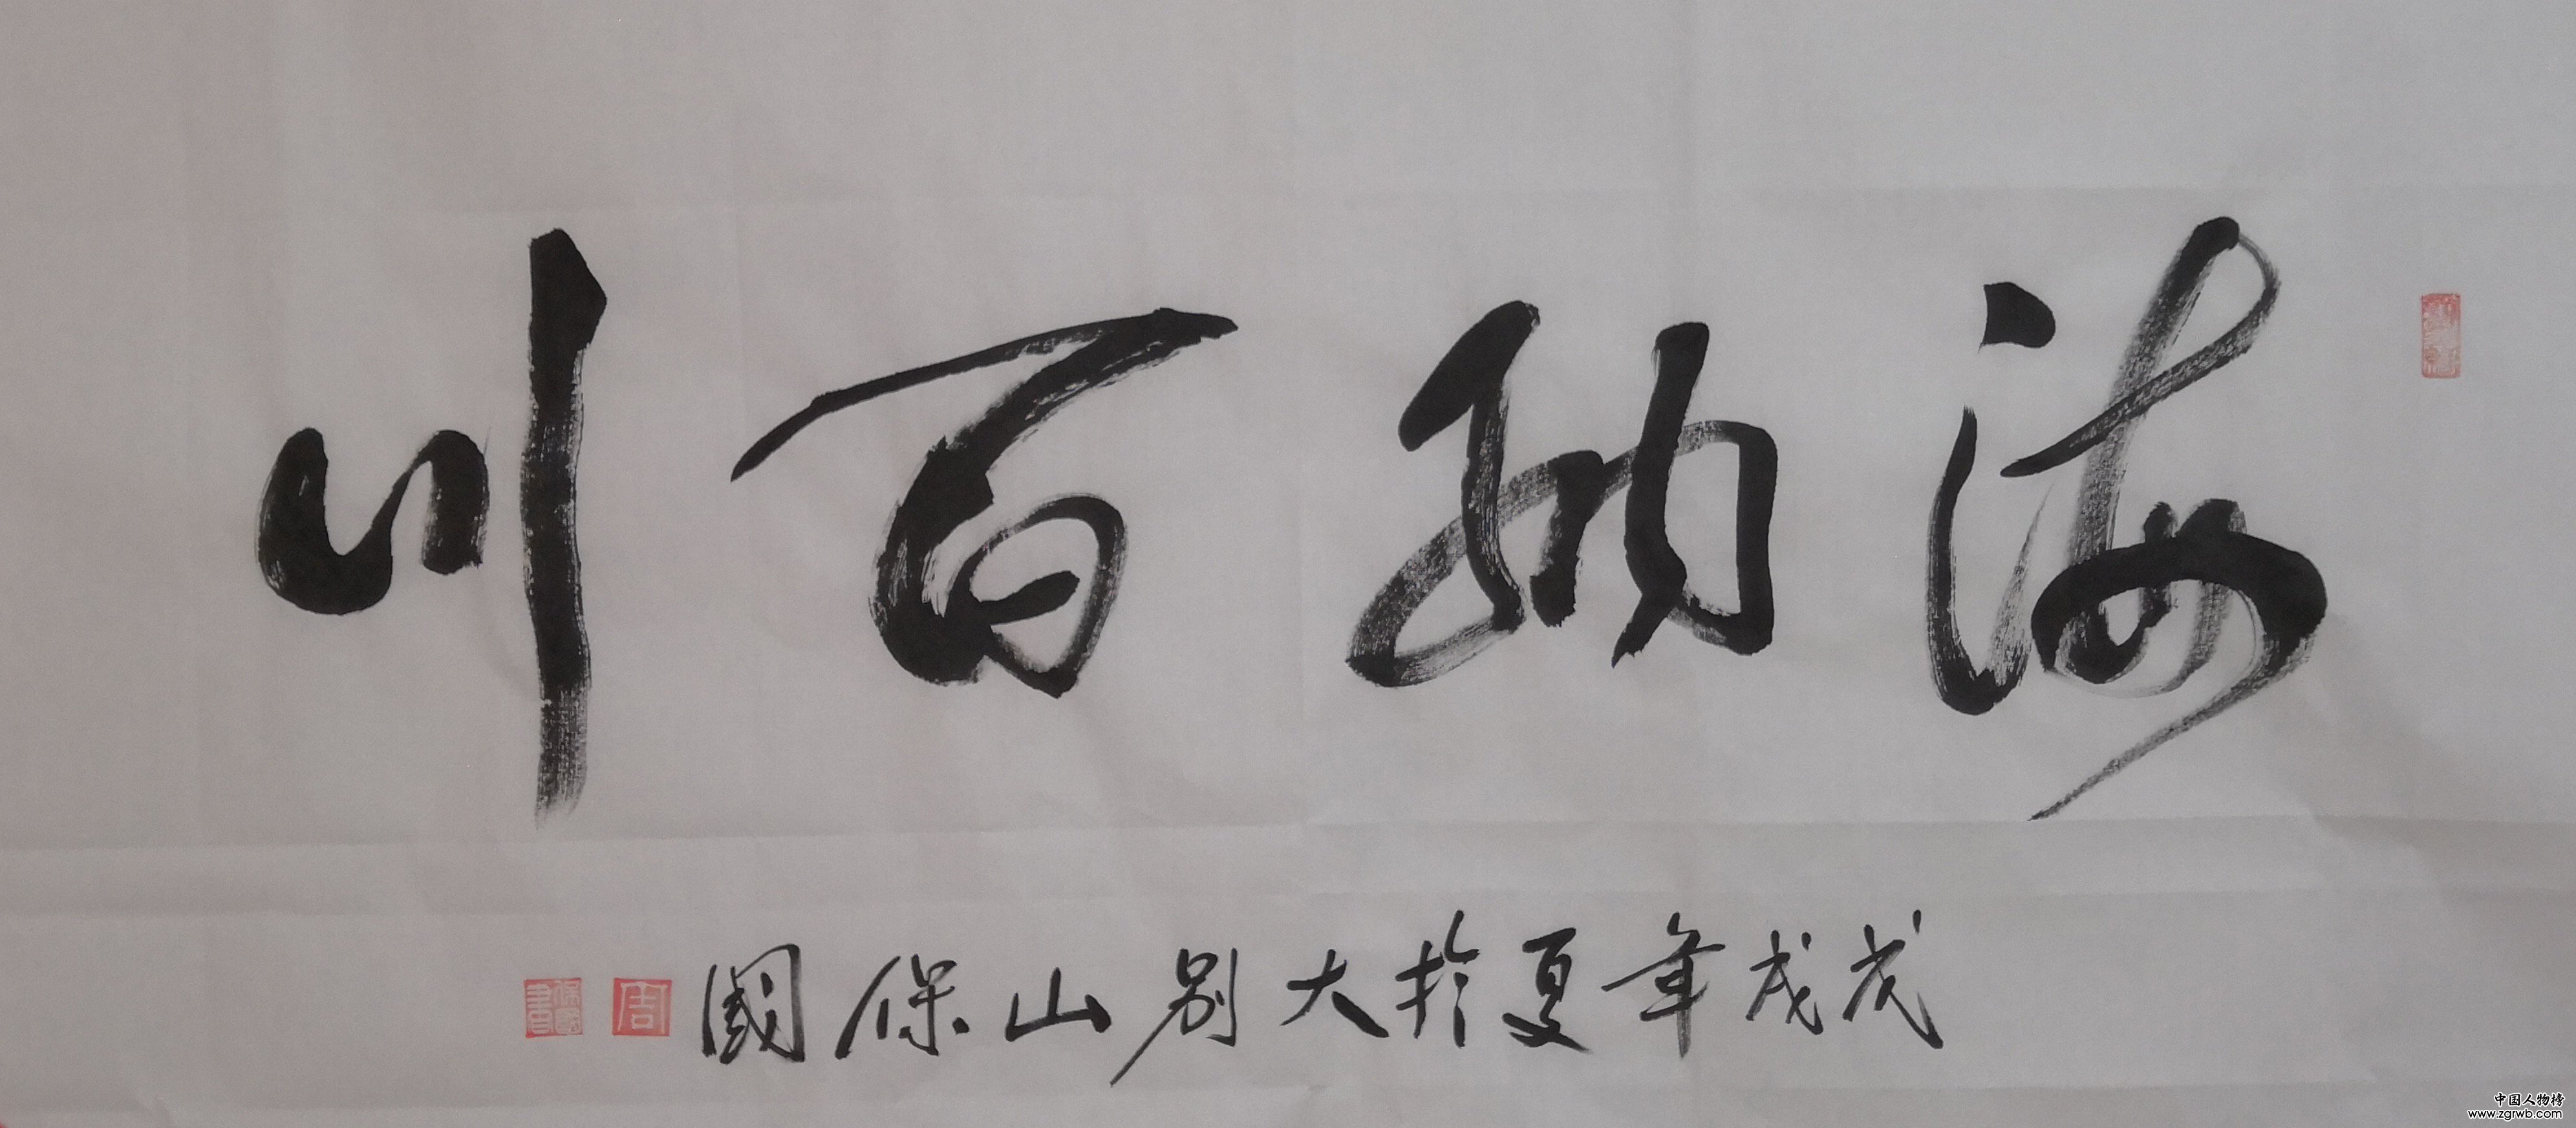 海納百川
戊戌年夏於大别山保國
周
保國書畫
中国人物榜
www.zgrwb.com